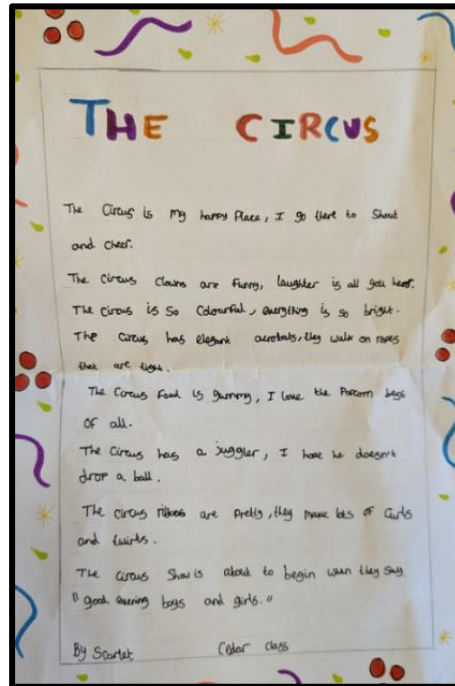 THE CIRCUS
The Circus is my happy Place, I go there to Shout
and cheer.
The Circus Clowns are funny, laughter is all you hear.
The circus is so Colourful, everything is so bright.
The circus has elegant acrobats, they walk on ropes
that are tight.
The Circus Food is yummy, I love the Popcorn best
OF all.
The Circus has a juggler, I hope he doesn't
drop a ball.
The circus ribbons are Pretty, they make lots of Curls
and twirls.
The circus Show is about to begin when they say
"good evening boys and girls."
By Scarlet Cedar Class